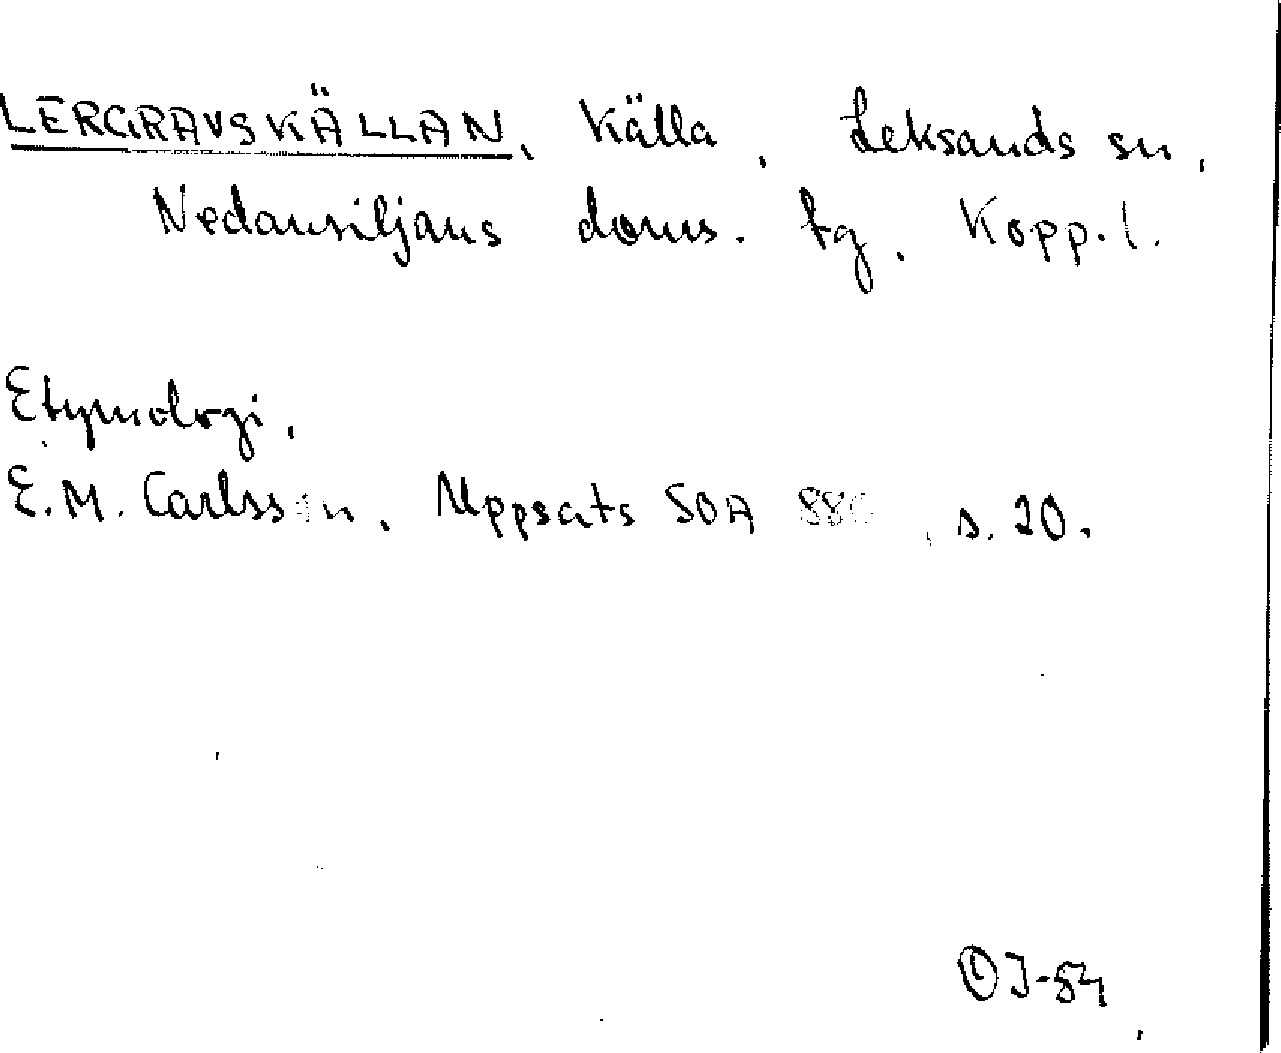 LERGRAVSKÄLLAN, Källa, Leksands sn,
Nedansiljans doms. tg, Kopp. l.
Etymologi.
E.M. Carlsson, Uppsats SOA 880, s. 20.
OJ-54